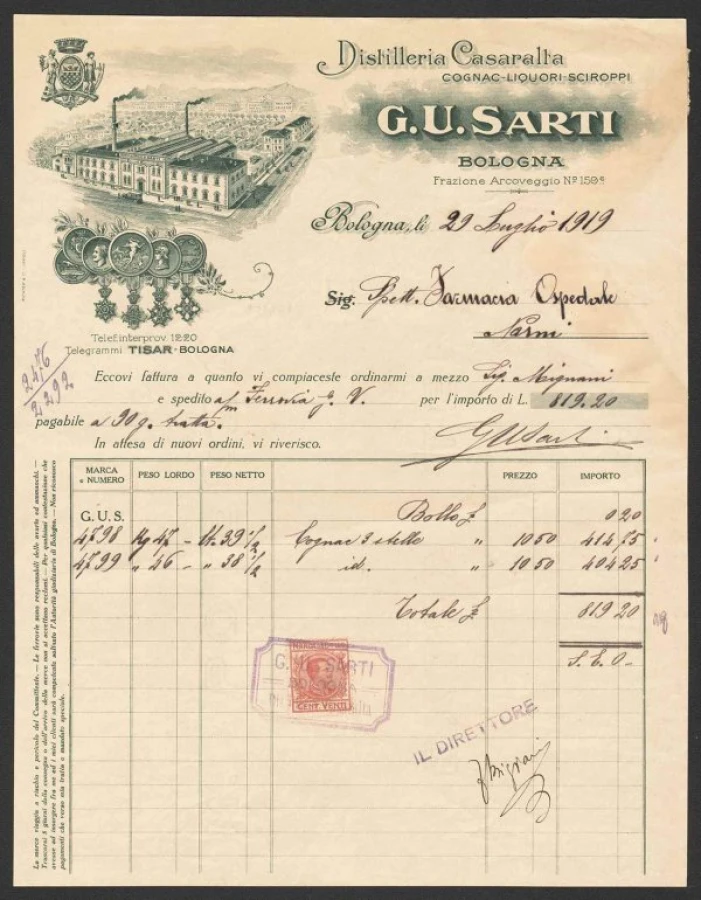 Distilleria Casaralta
COGNAC-LIQUORI-SCIROPPI
G.U. SARTI
BOLOGNA
Frazione Arcoveggio No 159
Bologna, li 29 Luglio 1919
Sig. Spett. Farmacia Ospedale
Narni
Telef. interprov. 12-20
Telegrammi TISAR-BOLOGNA
2476
2292
Eccovi fattura a quanto vi compiaceste ordinarmi a mezzo Sig. Mignani
e spedito a/m Ferrovia g. V. per l'importo di L. 819.20
pagabile a 90 g. tratta.
In attesa di nuovi ordini, vi riverisco. GUSarti
MARCA e NUMERO PESO LORDO PESO NETTO PREZZO IMPORTO
G. U. S. Bollo £ 0 20
4798 Kg 47 - lt. 39 1/2 Cognac 3 stelle " 10 50 414 75
4799 " 46 - " 38 1/2 id. " 10 50 404 25
Totale £ 819 20
S. E. O.
G. U. SARTI
BOLOGNA
CENT. VENTI
IL DIRETTORE
La merce viaggia a rischio e pericolo del Committente. — Le ferrovie sono responsabili delle avarie ed ammanchi. —
Trascorsi 8 giorni dalla consegna o dall'arrivo della merce non si accettano reclami. — Per qualsiasi contestazione che
avesse ad insorgere fra me ed i miei clienti sarà competente soltanto l'Autorità giudiziaria di Bologna. — Non riconosco
pagamenti che verso mia tratta o mandato speciale.